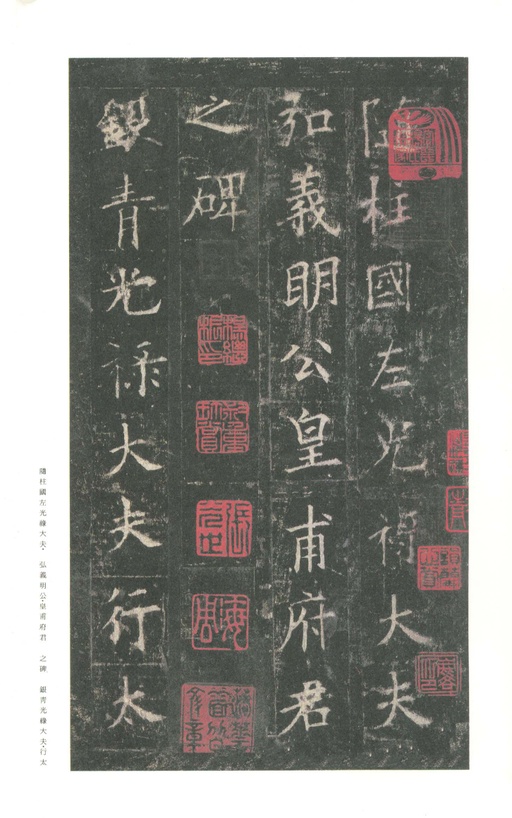 隨柱國左光祿大夫
弘義明公皇甫府君
之碑
銀青光祿大夫行太
隨柱國左光祿大夫·弘義明公·皇甫府君 之碑 銀青光祿大夫·行太